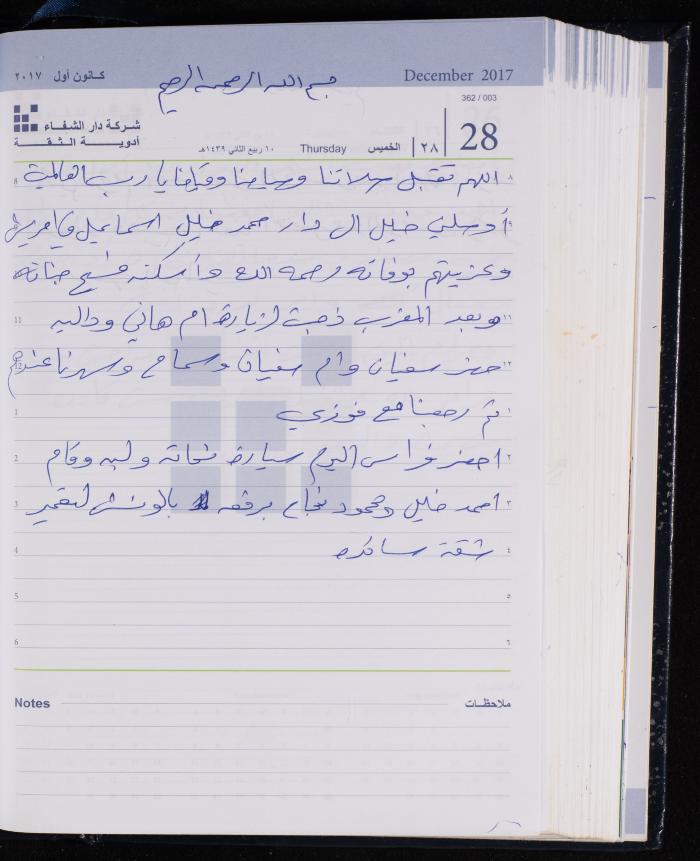 كانون أول ٢٠١٧
بسم الله الرحمن الرحيم
December 2017
362 / 003
شركة دار الشفاء
أدوية الثقة
١٠ ربيع الثاني ١٤٣٩هـ
Thursday
الخميس
٢٨
28
اللهم تقبل صلاتنا وصيامنا وقيامنا يا رب العالمين
أوصلني خليل الى دار محمد خليل اسماعيل
وعزيتهم بوفاته رحمه الله وأسكنه فسيح جناته
وبعد المغرب ذهبت لزيارة ام هاني وداليه
حضر سفيان وام سفيان وسماح وسهرنا عندهم
ثم رجعنا مع فوزي
احضر فراس اليوم سيارة نحاته وقام
احمد خليل ومحمود برفعه بالونش لتعمير
شقة
Notes
ملاحظات